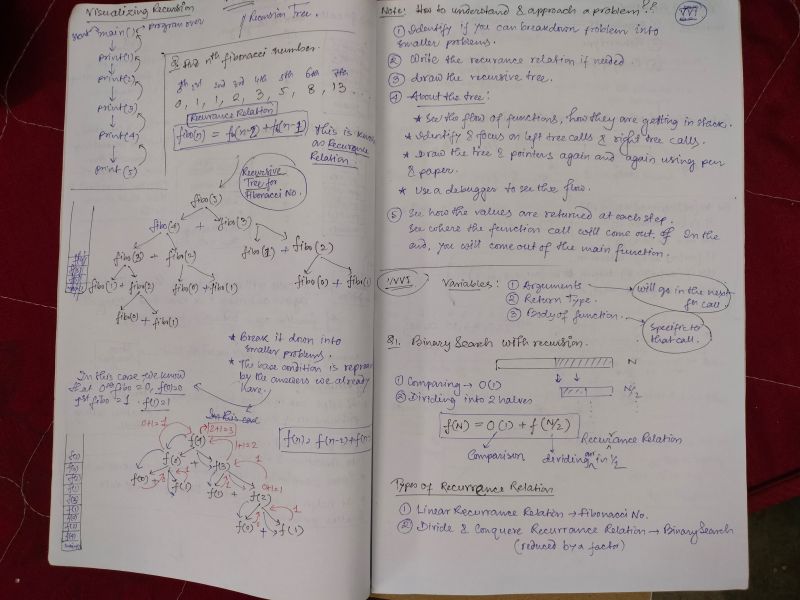 Visualizing Recursion
Recursion Tree.
start main() program over
print(1)
print(2)
print(3)
print(4)
print(5)
nth fibonacci number.
0th 1st 2nd 3rd 4th 5th 6th 7th
0, 1, 1, 2, 3, 5, 8, 13 ...
Recurrance Relation
fibo(n) =
this is
as Recurrance
Relation.
Recursive
Tree for
Fibonacci No.
fibo(4) + fibo(3)
fibo(3) + fibo(2)
fibo(1) + fibo(2)
fibo(1) + fibo(2)
fibo(0) + fibo(1)
fibo(0) + fibo(1)
fibo(0) + fibo(1)
* Break it down into
smaller problems.
* The base condition is
by the answers we already
have.
In this case we know
that 0th fibo = 0, f(0)=0
1st fibo = 1 f(1)=1
In this case
0+1=1
2+1=3
1+1=2
f(4)
f(2)
f(3)
f(0) + f(1)
f(1) + f(2)
0+1=1
f(0) + f(1)
Note: How to understand & approach a problem??
VVI
① Identify if you can breakdown problem into
smaller problems.
② Write the recurance relation if needed
③ draw the recursive tree.
④ About the tree:
* See the flow of functions, how they are getting in stack.
* Identify & focus on left tree calls & right tree calls.
* Draw the tree & pointers again and again using pen
& paper.
* Use a debugger to see the flow.
⑤ See how the values are returned at each step.
See where the function call will come out of In the
end, you will come out of the main function.
VVI
Variables: ① Arguments
② Return Type.
③ Body of function.
will go in the next
fn call.
Specific to
that call.
Q1. Binary Search with recursion.
N
① Comparing → O(1)
② Dividing into 2 halves
N/2
f(N) = O(1) + f(N/2)
Recurrance Relation
Comparison
dividing arr in 1/2
Types of Recurrance Relation
① Linear Recurrance Relation → Fibonacci No.
② Divide & Conquere Recurrance Relation → Binary Search
(reduced by a factor)